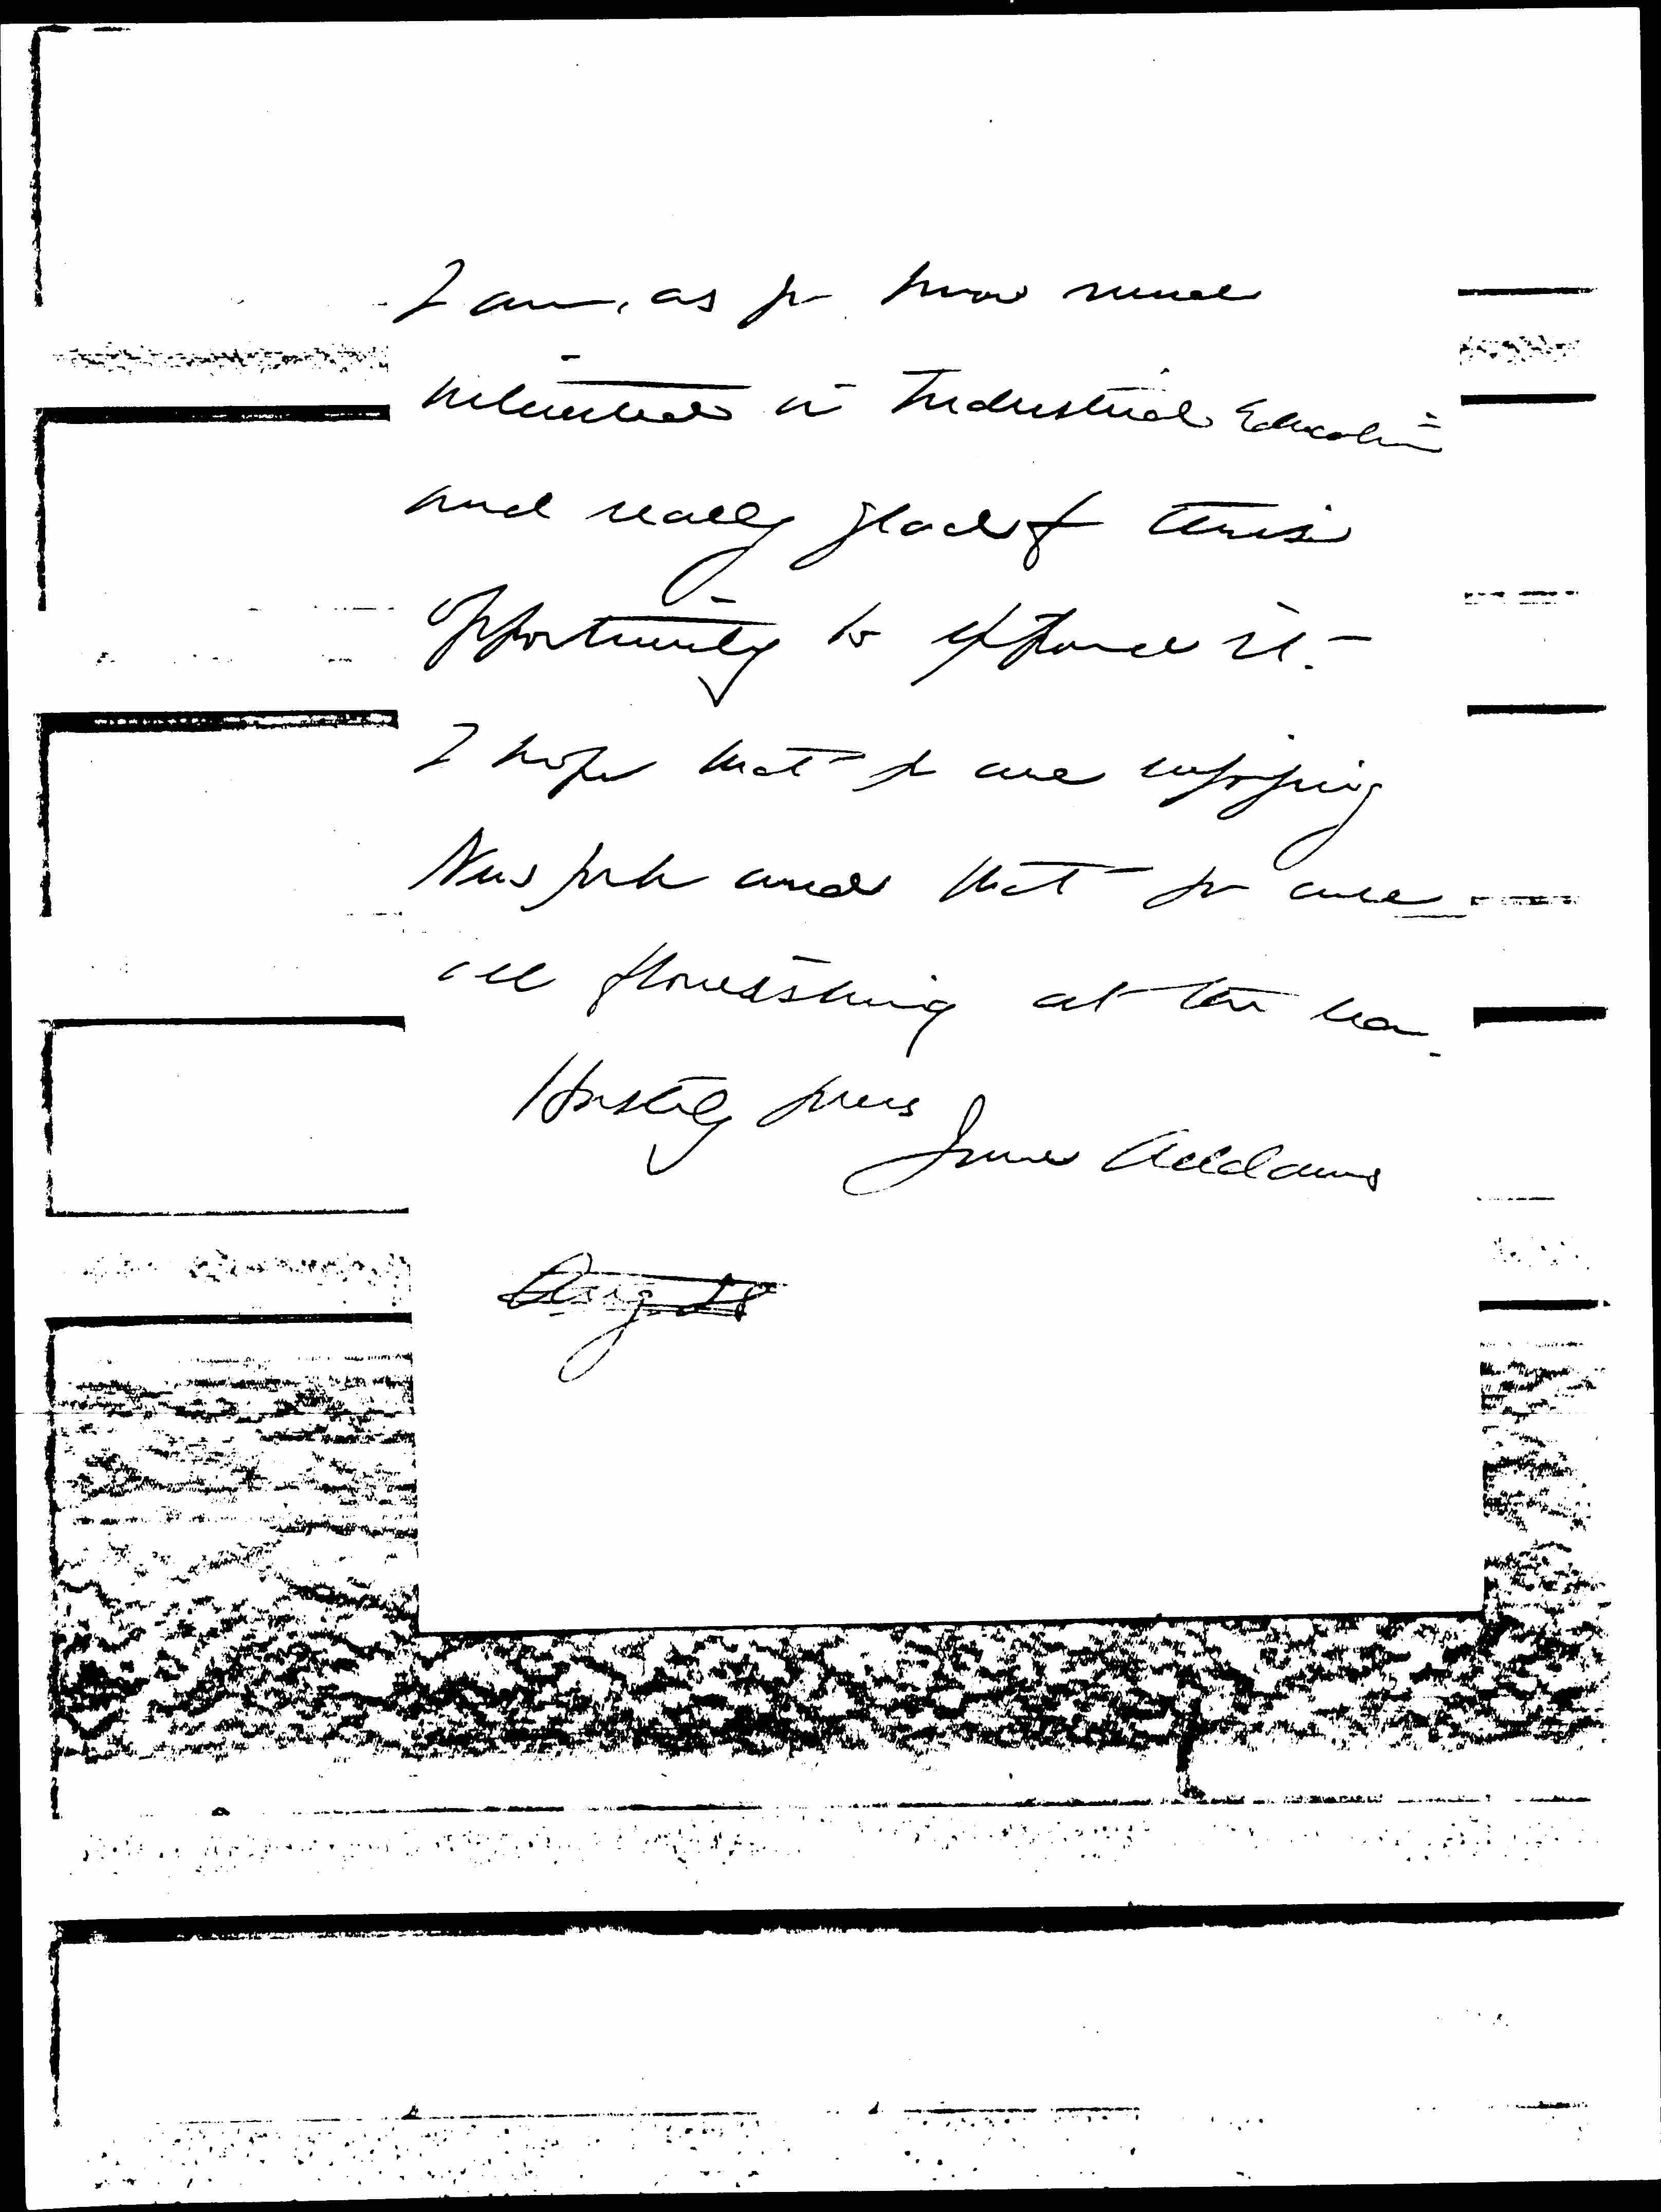 I am, as you know much
interested in Industrial Education
and really glad of this
opportunity to expound it. –
I hope that you are enjoying
New York and that you are
all flourishing at the
Hastily yours
Jane Addams
Aug 28